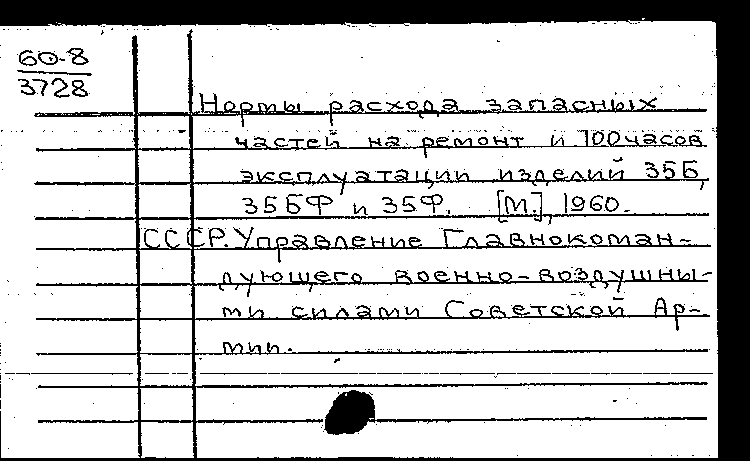 60-8
3728
Нормы расхода запасных
частей на ремонт и 100 часов
эксплуатации изделий 35Б,
35БФ и 35Ф. [М.], 1960.
СССР. Управление Главнокоман-
дующего военно-воздушны-
ми силами Советской Ар-
мии.